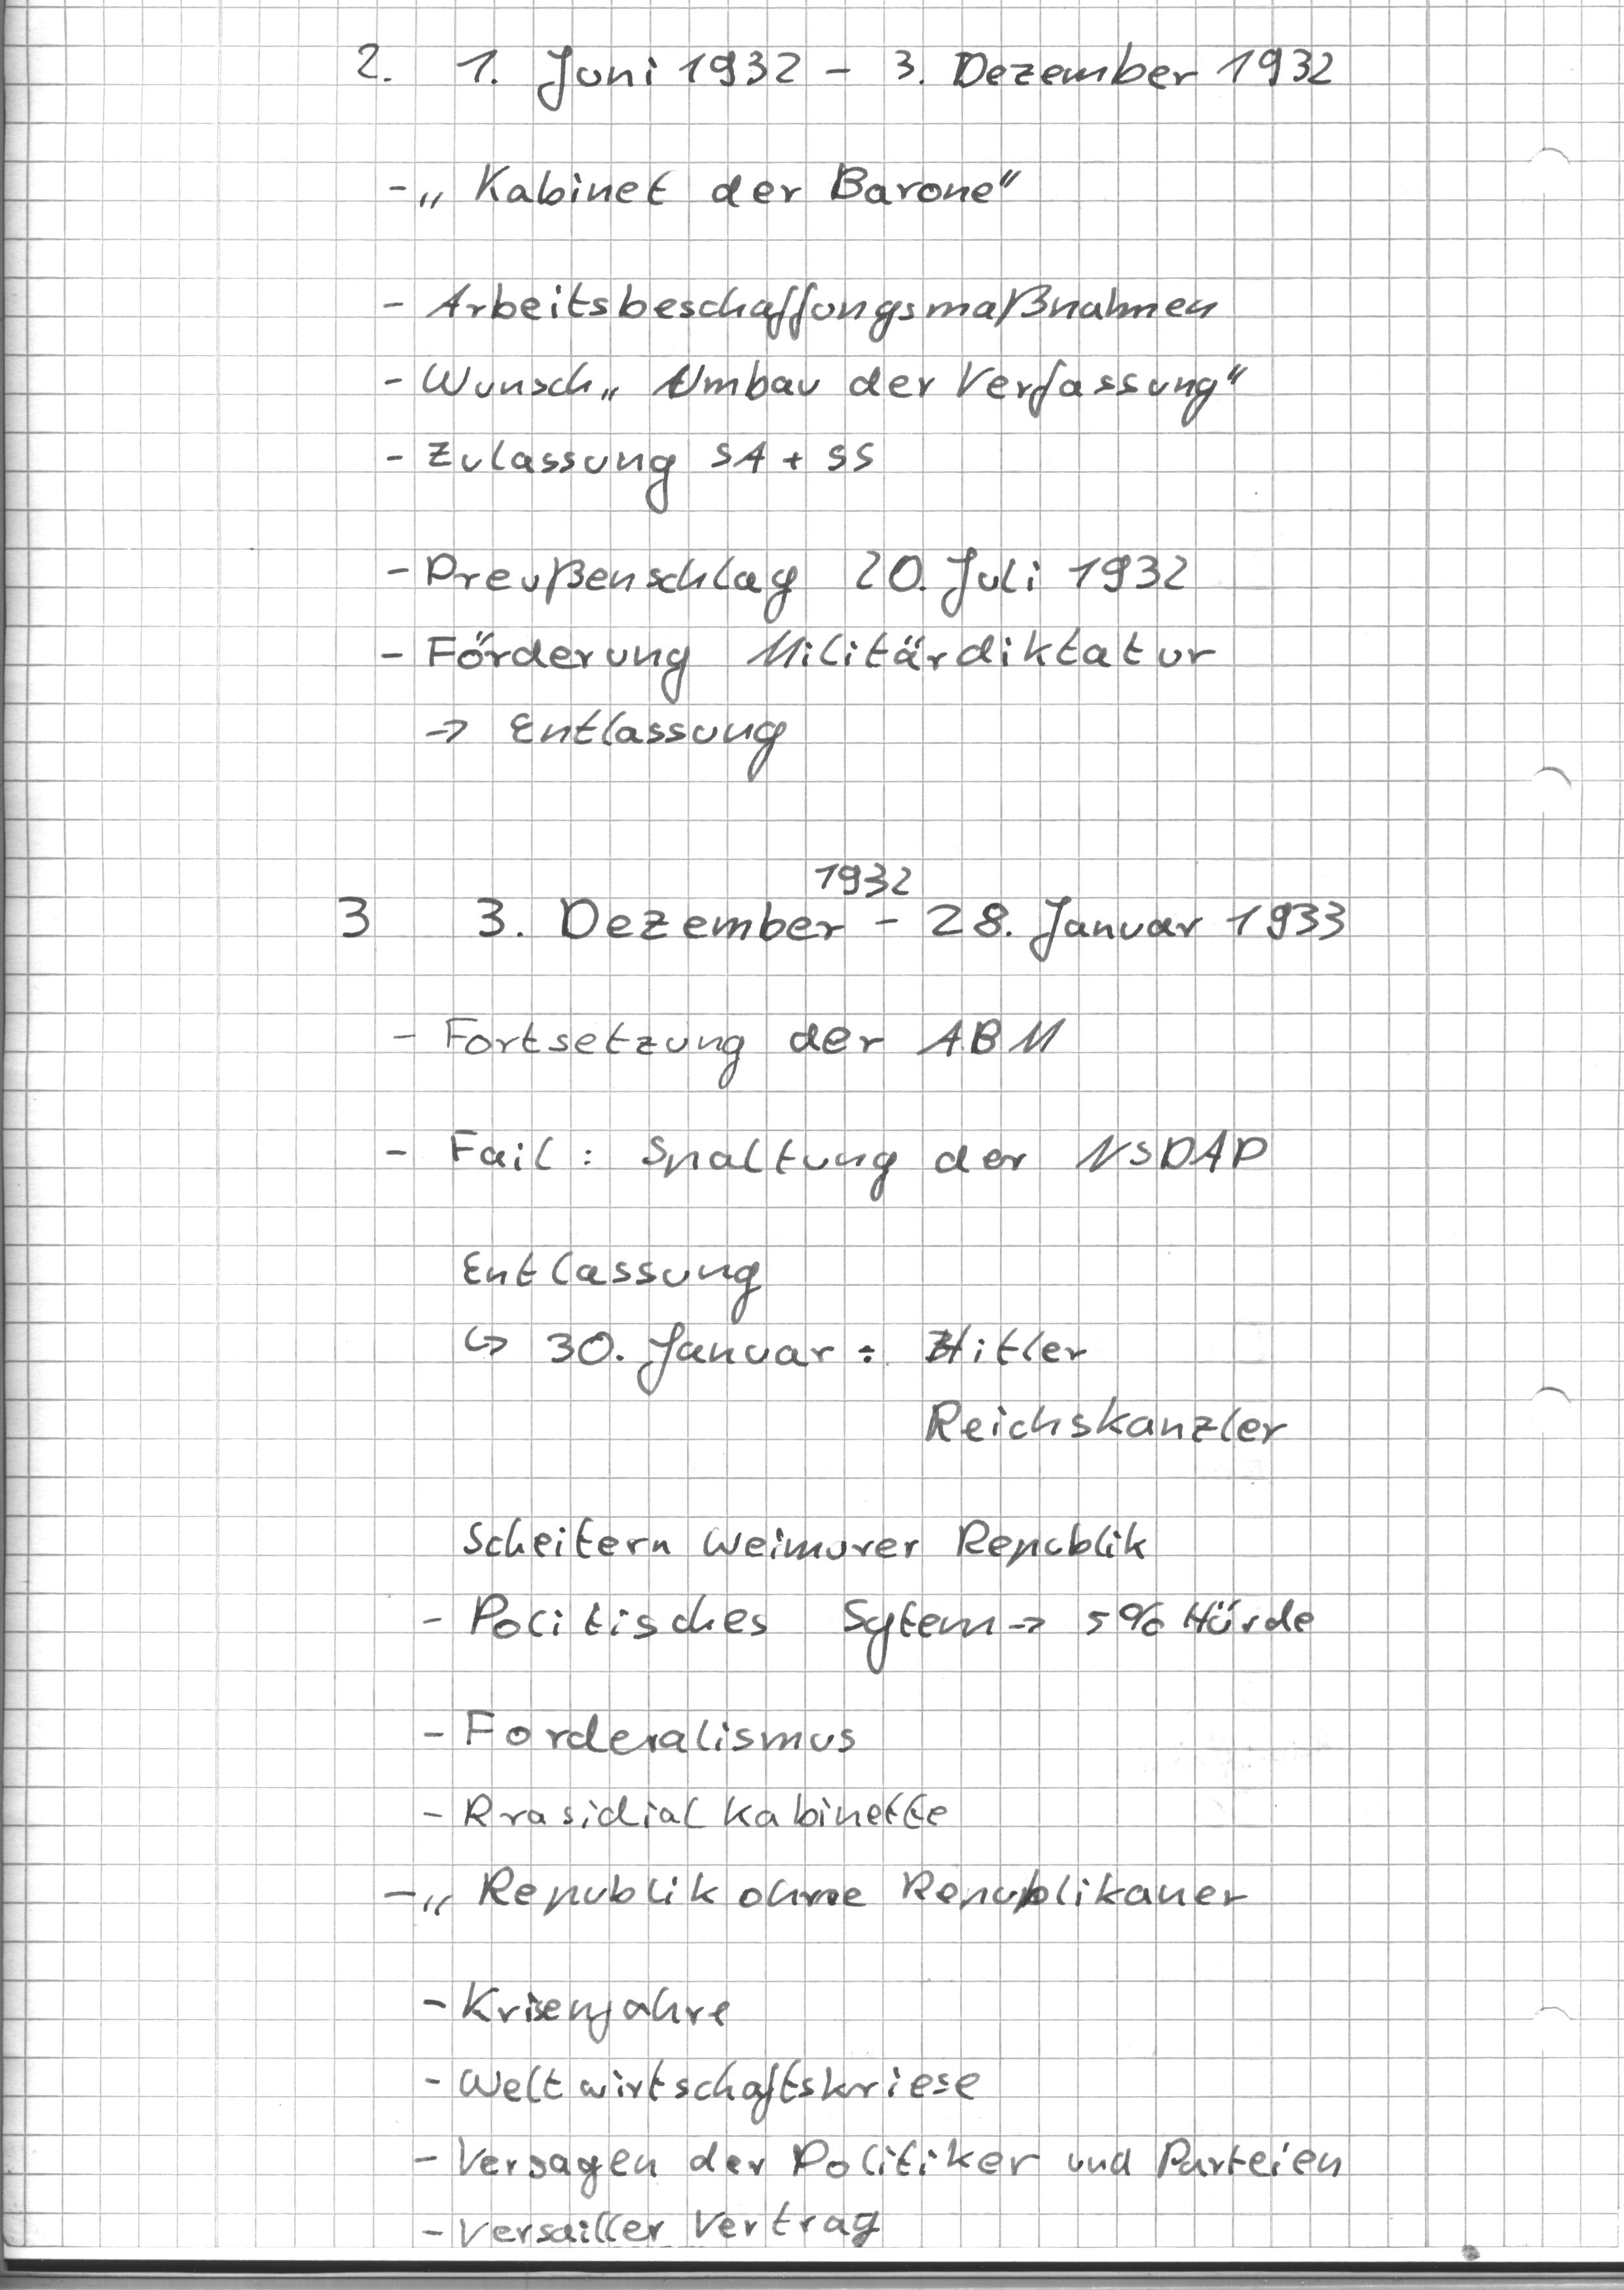 2. 1. Juni 1932 - 3. Dezember 1932
- „Kabinet der Barone"
- Arbeitsbeschaffungsmaßnahmen
- Wunsch „Umbau der Verfassung"
- Zulassung SA + SS
- Preußenschlag 20. Juli 1932
- Förderung Militärdiktatur
→ Entlassung
1932
3 3. Dezember - 28. Januar 1933
- Fortsetzung der ABM
- Fail: Spaltung der NSDAP
Entlassung
↳ 30. Januar: Hitler
Reichskanzler
Scheitern Weimarer Republik
- Politisches Sytem → 5% Hürde
- Forderalismus
- Rrasidialkabinette
- „Republik ohne Republikaner
- Krisenjahre
- Weltwirtschaftskriese
- Versagen der Politiker und Parteien
- Versailler Vertrag